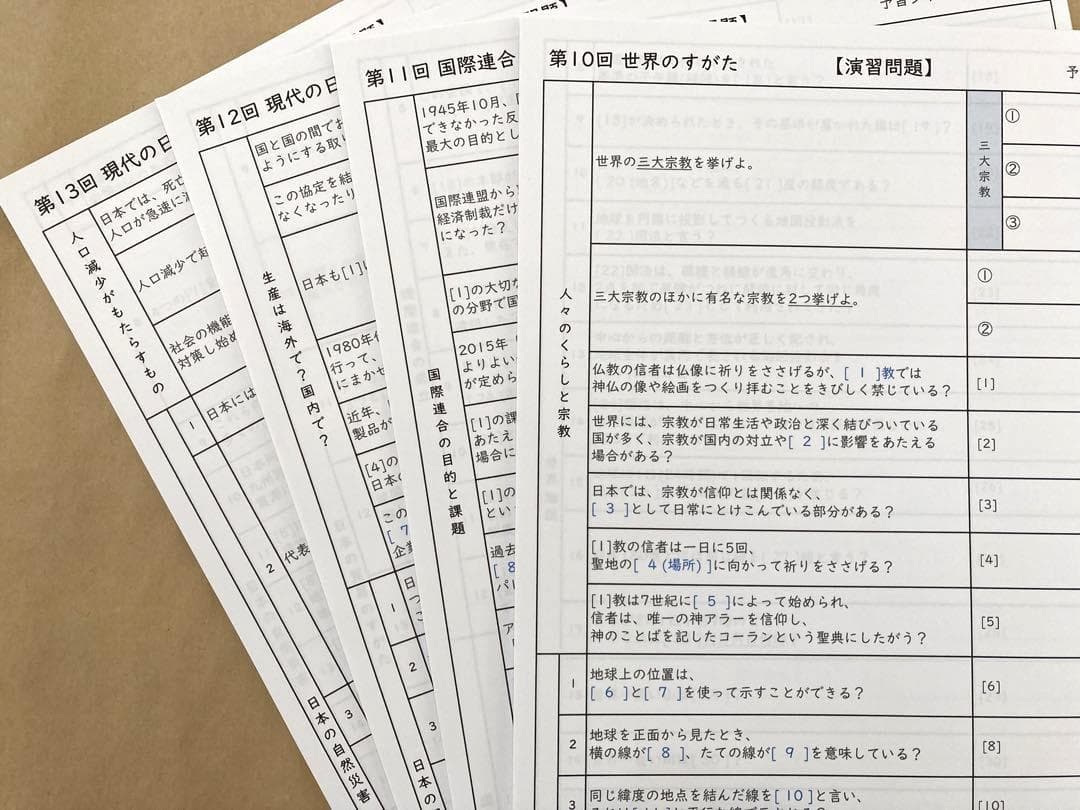 第10回 世界のすがた 【演習問題】
予
世界の三大宗教を挙げよ。
三大宗教
①
②
③
三大宗教のほかに有名な宗教を2つ挙げよ。
①
②
人々のくらしと宗教
仏教の信者は仏像に祈りをささげるが、[ 1 ]教では
神仏の像や絵画をつくり拝むことをきびしく禁じている?
[1]
世界には、宗教が日常生活や政治と深く結びついている
国が多く、宗教が国内の対立や[ 2 ]に影響をあたえる
場合がある?
[2]
日本では、宗教が信仰とは関係なく、
[ 3 ]として日常にとけこんでいる部分がある?
[3]
[1]教の信者は一日に5回、
聖地の[ 4(場所) ]に向かって祈りをささげる?
[4]
[1]教は7世紀に[ 5 ]によって始められ、
信者は、唯一の神アラーを信仰し、
神のことばを記したコーランという聖典にしたがう?
[5]
1
地球上の位置は、
[ 6 ]と[ 7 ]を使って示すことができる?
[6]
2
地球を正面から見たとき、
横の線が[ 8 ]、たての線が[ 9 ]を意味している?
[8]
3
同じ緯度の地点を結んだ線を[ 10 ]と言い、
[10]
第11回 国際連合
1945年10月、[
できなかった反
最大の目的とし
国際連盟から
経済制裁だけ
になった?
[1]の大切な
の分野で国
2015年
よりよい
が定めら
国際連合の目的と課題
[1]の課
あたえ
場合に
[1]の
とい
過去
[ 8
パ
ア
1
2
3
第12回 現代の日
国と国の間でお
ようにする取り
この協定を結
なくなったり
日本も[1]に
生産は海外で?国内で?
1980年代
行って、
にまかせ
近年、
製品が
[4]の
日本の
この
[ 7
企業
1
2
3
日本の
第13回 現代の日
日本では、死亡
人口が急速に減
人口減少で起
社会の機能
対策し始め
人口減少がもたらすもの
1
日本には
2
代表
3
日本の自然災害